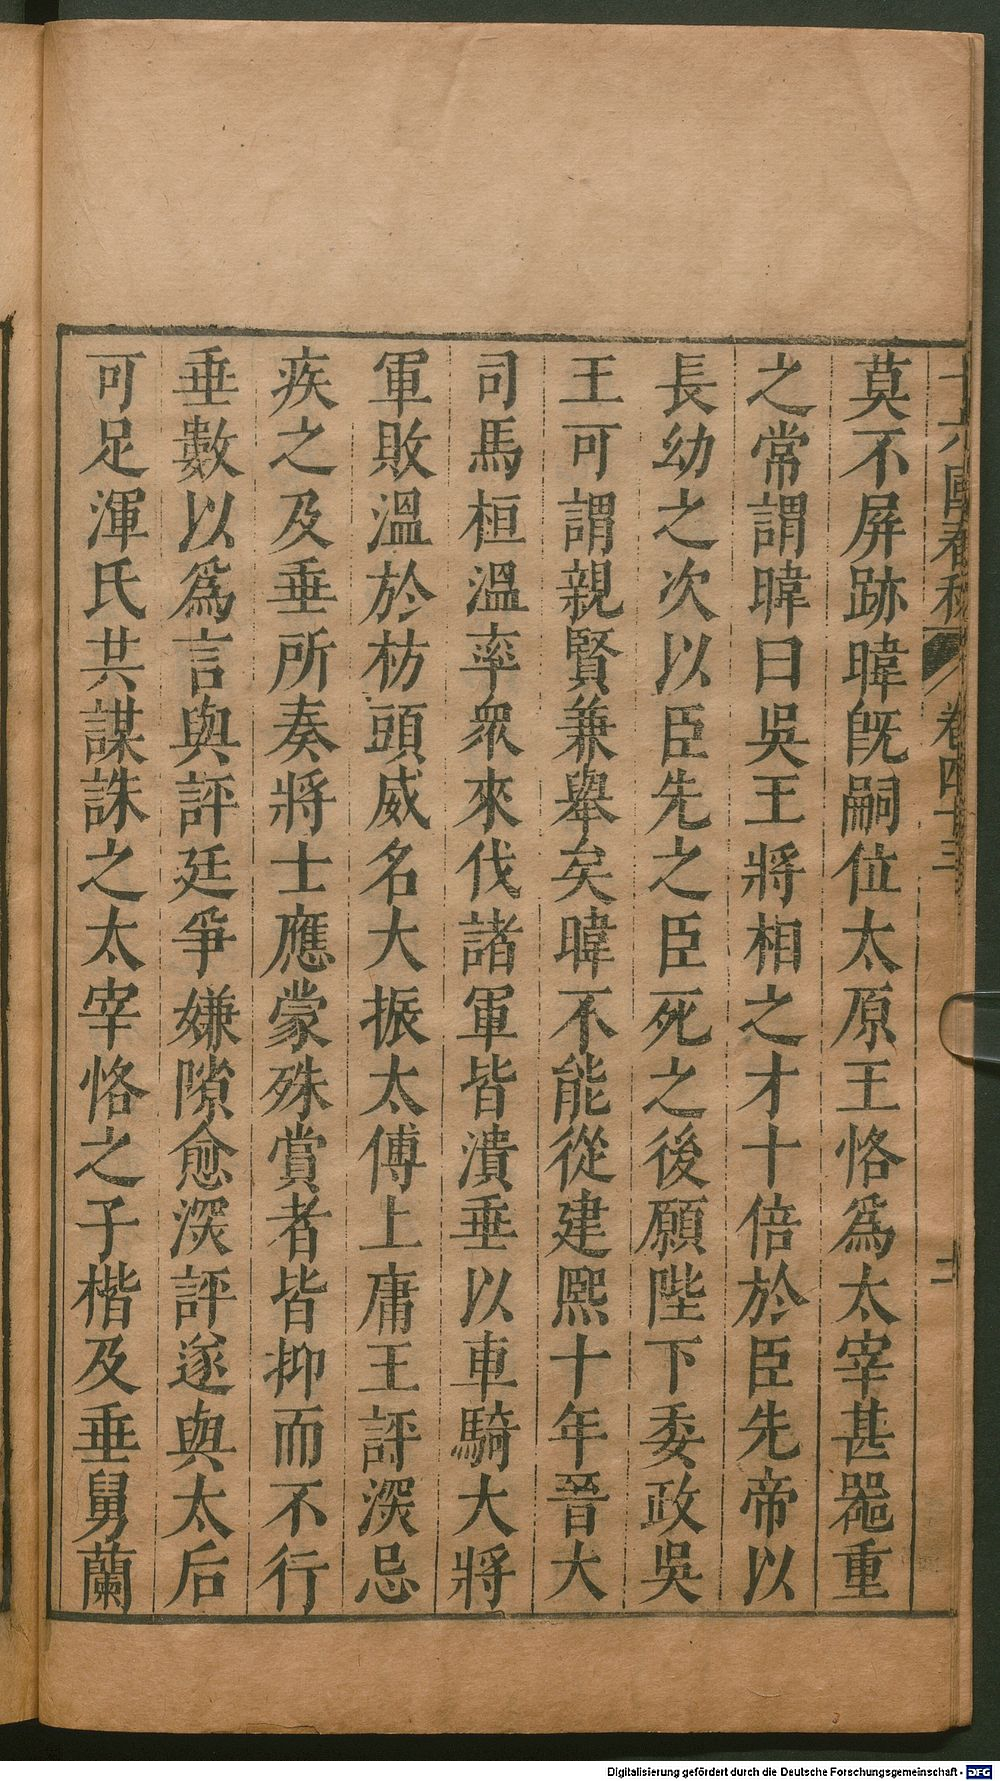 莫不屏跡暐旣嗣位太原王恪爲太宰甚噐重
之常謂暐曰吳王將相之才十倍於臣先帝以
長幼之次以臣先之臣死之後願陛下委政吳
王可謂親賢兼舉矣暐不能從建熙十年晉大
司馬桓溫率衆來伐諸軍皆潰垂以車騎大將
軍敗溫於枋頭威名大振太傅上庸王評深忌
疾之及垂所奏將士應蒙殊賞者皆抑而不行
垂數以爲言與評廷爭嫌隙愈深評遂與太后
可足渾氏共謀誅之太宰恪之子楷及垂舅蘭
十六國春秋 卷四十三
Digitalisierung gefördert durch die Deutsche Forschungsgemeinschaft - DFG